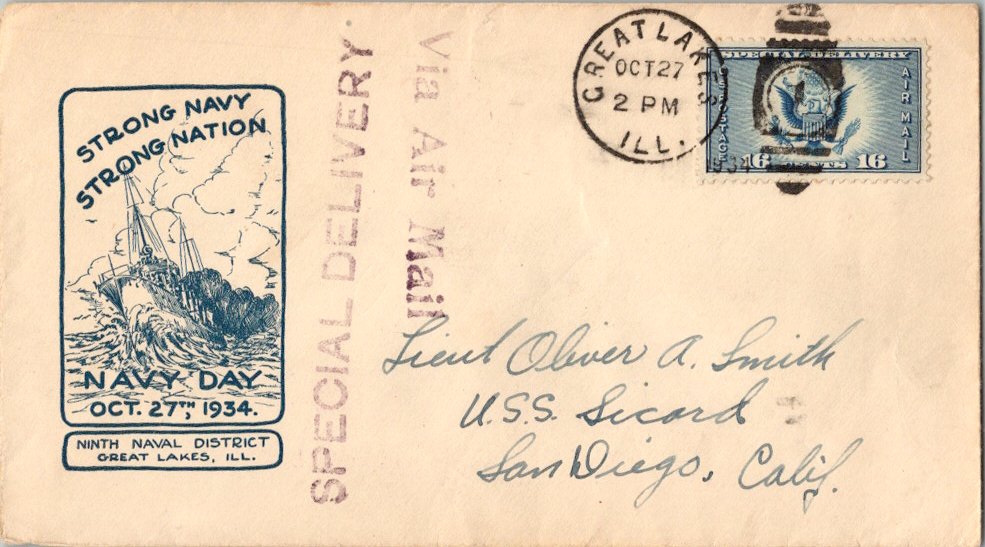 STRONG NAVY
STRONG NATION
NAVY DAY
OCT. 27TH, 1934.
NINTH NAVAL DISTRICT
GREAT LAKES, ILL.
SPECIAL DELIVERY
Via Air Mail
GREAT LAKES
OCT 27
2 PM
ILL.
1934
SPECIAL DELIVERY
U.S. POSTAGE
AIR MAIL
16 CENTS 16
Lieut Oliver A. Smith
U.S.S. Sicard
San Diego, Calif.